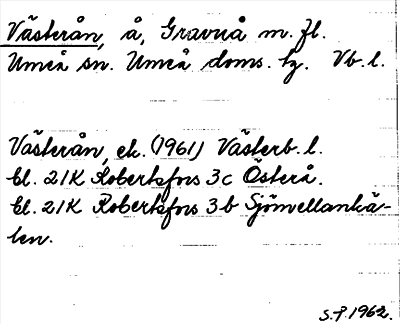 Västerån, å, Gravuå m. fl.
Umeå sn. Umeå doms. tg. Vb. l.
Västerån, ek. (1961) Västerb. l.
bl. 21K Robertsfors 3c Österå.
bl. 21K Robertsfors 3b Sjömellankä-
len.
S.P. 1962.